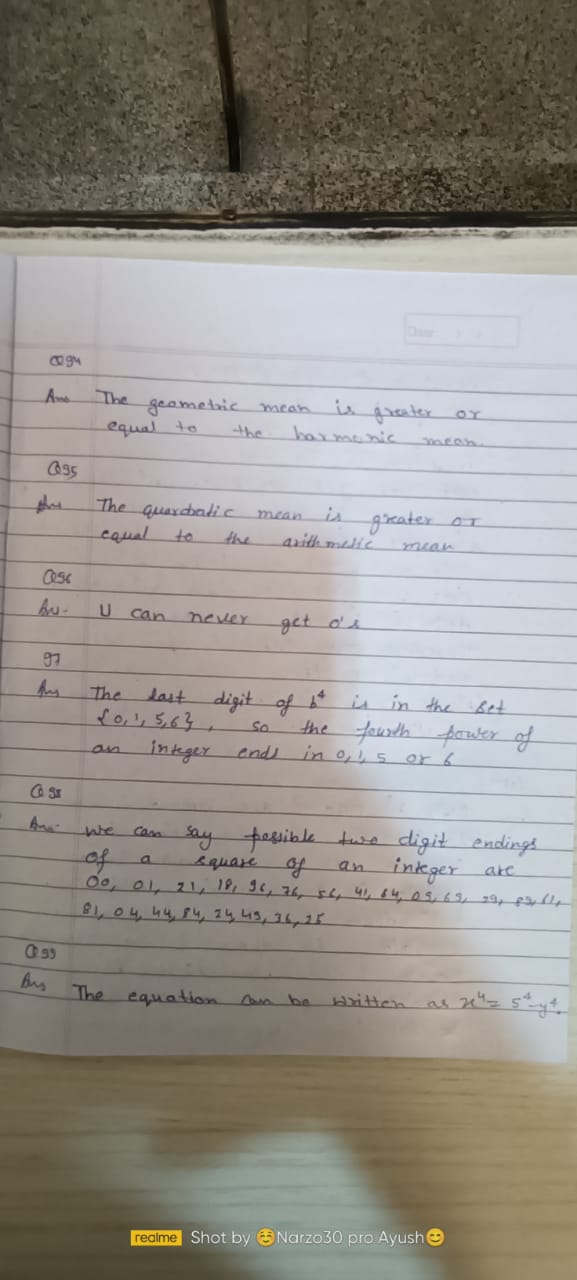 Q94
Ans The geometric mean is greater or
equal to the harmonic mean.
Q95
Ans The quardratic mean is greater or
equal to the arithmetic mean
Q96
An- U can never get 0's
97
Ans The last digit of b⁴ is in the set
{0,1,5,6}, so the fourth power of
an integer ends in 0,1,5 or 6
Q98
Ans- We can say possible two digit endings
of a square of an integer are
00, 01, 21, 16, 96, 76, 56, 41, 64, 09, 69, 29, 89, 61,
81, 04, 44, 84, 24, 49, 36, 25
Q99
Ans The equation can be written as x⁴= 5⁴-y⁴.
realme Shot by Narzo30 pro Ayush